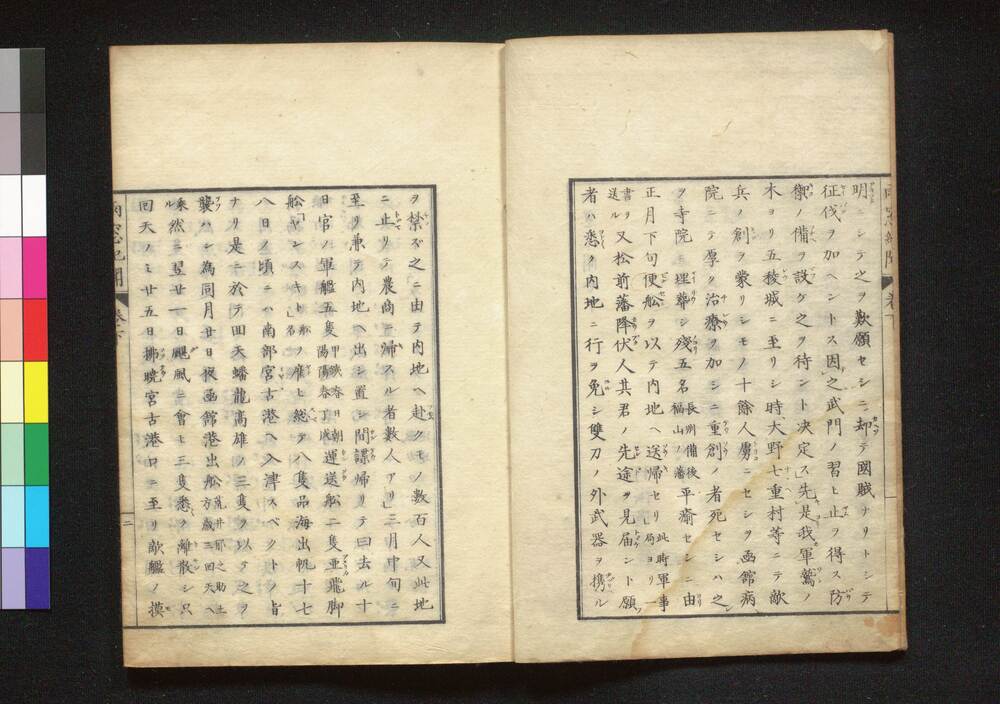 明ニシテ之ヲ歎願セシニ却テ國賊ナリトシテ
征伐ヲ加ヘントス因之武門ノ習ヒ止ヲ得ス防
禦ノ備ヲ設ケ之ヲ待ント决定ス先是我軍鷲ノ
木ヨリ五稜城ニ至リシ時大野七重村等ニテ敵
兵ノ創ヲ蒙リシモノ十餘人虜ニセシヲ函館病
院ニテ厚ク治療ヲ加シニ重創ノ者死セシハ之
ヲ寺院ニ埋葬シ殘五名長州備後福山ノ藩平癒セシニ由
正月下旬便舩ヲ以テ内地ヘ送帰セリ此時軍事局ヨリ一
書ヲ送ル又松前藩降伏人其君ノ先途ヲ見届ント願
者ハ悉ク内地ニ行ヲ免シ雙刀ノ外武器ヲ携ル
ヲ禁ズ之ニ由テ内地ヘ赴クモノ數百人又此地
ニ止リテ農商ニ歸スル者數人アリ三月中旬ニ
至リ兼テ内地ヘ出シ置シ間諜帰リテ曰去ル十
日官ノ軍艦五隻甲鐵春日朝陽陽春丁戍運送舩二隻亜飛脚
舩ヤンスキー舩名ト ノ雇ヒ総テ八隻品海出帆十七
八日ノ頃ニハ南部宮古港ヘ入津スベシトノ旨
ナリ是ニ於テ回天蟠龍高雄ノ三隻ヲ以テ之ヲ
襲ハン為同月廿日夜函館港出舩荒井郁之助土方歳三回天ヘ
乗ル然ニ翌廿一日颶風ニ會ヒ三隻悉ク離散シ只
回天ノミ廿五日拂曉宮古港口ニ至リ敵艦ノ摸
雨窓紀聞 巻下
二